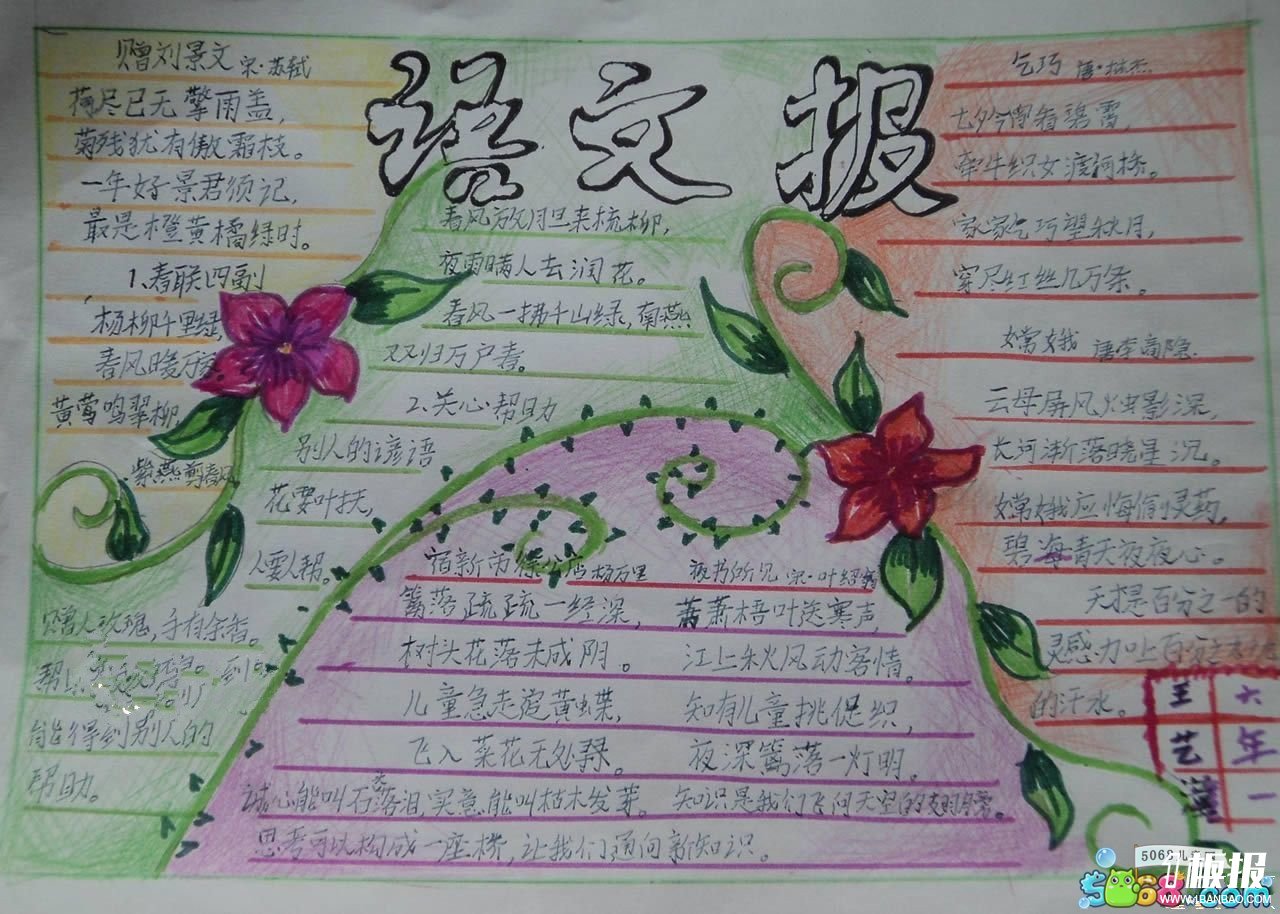 语文报
赠刘景文 宋·苏轼
荷尽已无擎雨盖,
菊残犹有傲霜枝。
一年好景君须记,
最是橙黄橘绿时。
1、春联四副
杨柳千里绿,
春风暖万家
黄莺鸣翠柳,
紫燕剪春风
春风放胆来梳柳,
夜雨瞒人去润花。
春风一拂千山绿,南燕
双归万户春。
2、关心帮助
别人的谚语
花要叶扶,
人要人帮。
赠人玫瑰,手有余香。
能得到别人的
帮助。
宿新市徐公店 杨万里
篱落疏疏一经深,
树头花落未成阴。
儿童急走追黄蝶,
飞入菜花无处寻。
夜书所见 宋·叶绍翁
萧萧梧叶送寒声,
江上秋风动客情。
知有儿童挑促织,
夜深篱落一灯明。
诚心能叫石头落泪,实意能叫枯木发芽。知识是我们飞向天空的
思考可以构成一座桥,让我们通向新知识。
乞巧 唐·林杰
七夕今宵看碧霄,
牵牛织女渡河桥。
家家乞巧望秋月,
穿尽红丝几万条。
嫦娥 唐李商隐
云母屏风烛影深,
长河渐落晓星沉。
嫦娥应悔偷灵药,
碧海青天夜夜心。
天才是百分之一的
灵感加上百分之
的汗水。
六
艺 年
一
5068儿童网
5068.com
板报
WWW.4BANBAO.COM